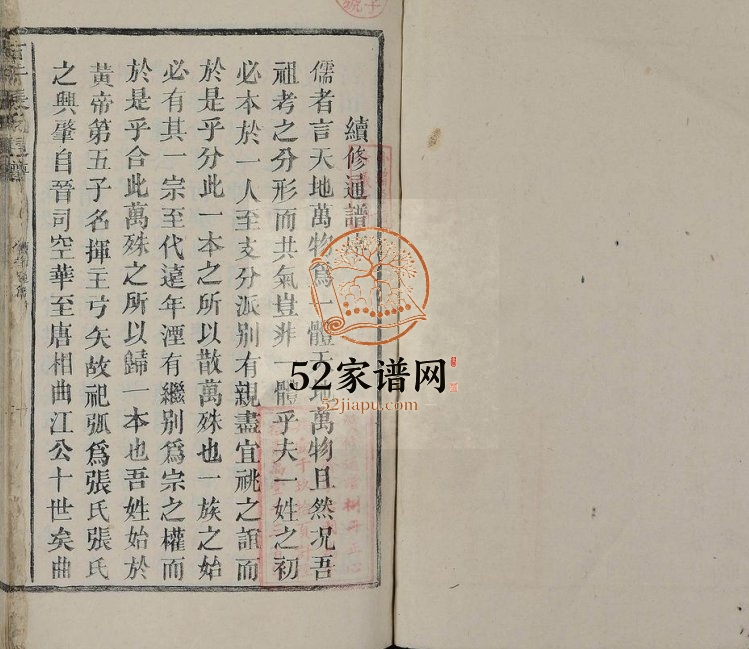 續修通譜序
儒者言天地萬物爲一體天地萬物且然況吾
祖考之分形而共氣豈非一體乎夫一姓之初
必本於一人至支分派別有親盡宜祧之誼而
於是乎分此一本之所以散萬殊也一族之始
必有其一宗至代遠年湮有繼別爲宗之權而
於是乎合此萬殊之所以歸一本也吾姓始於
黃帝第五子名揮主弓矢故祀弧爲張氏張氏
之興肇自晉司空華至唐相曲江公十世矣曲
52家谱网
52jiapu.com